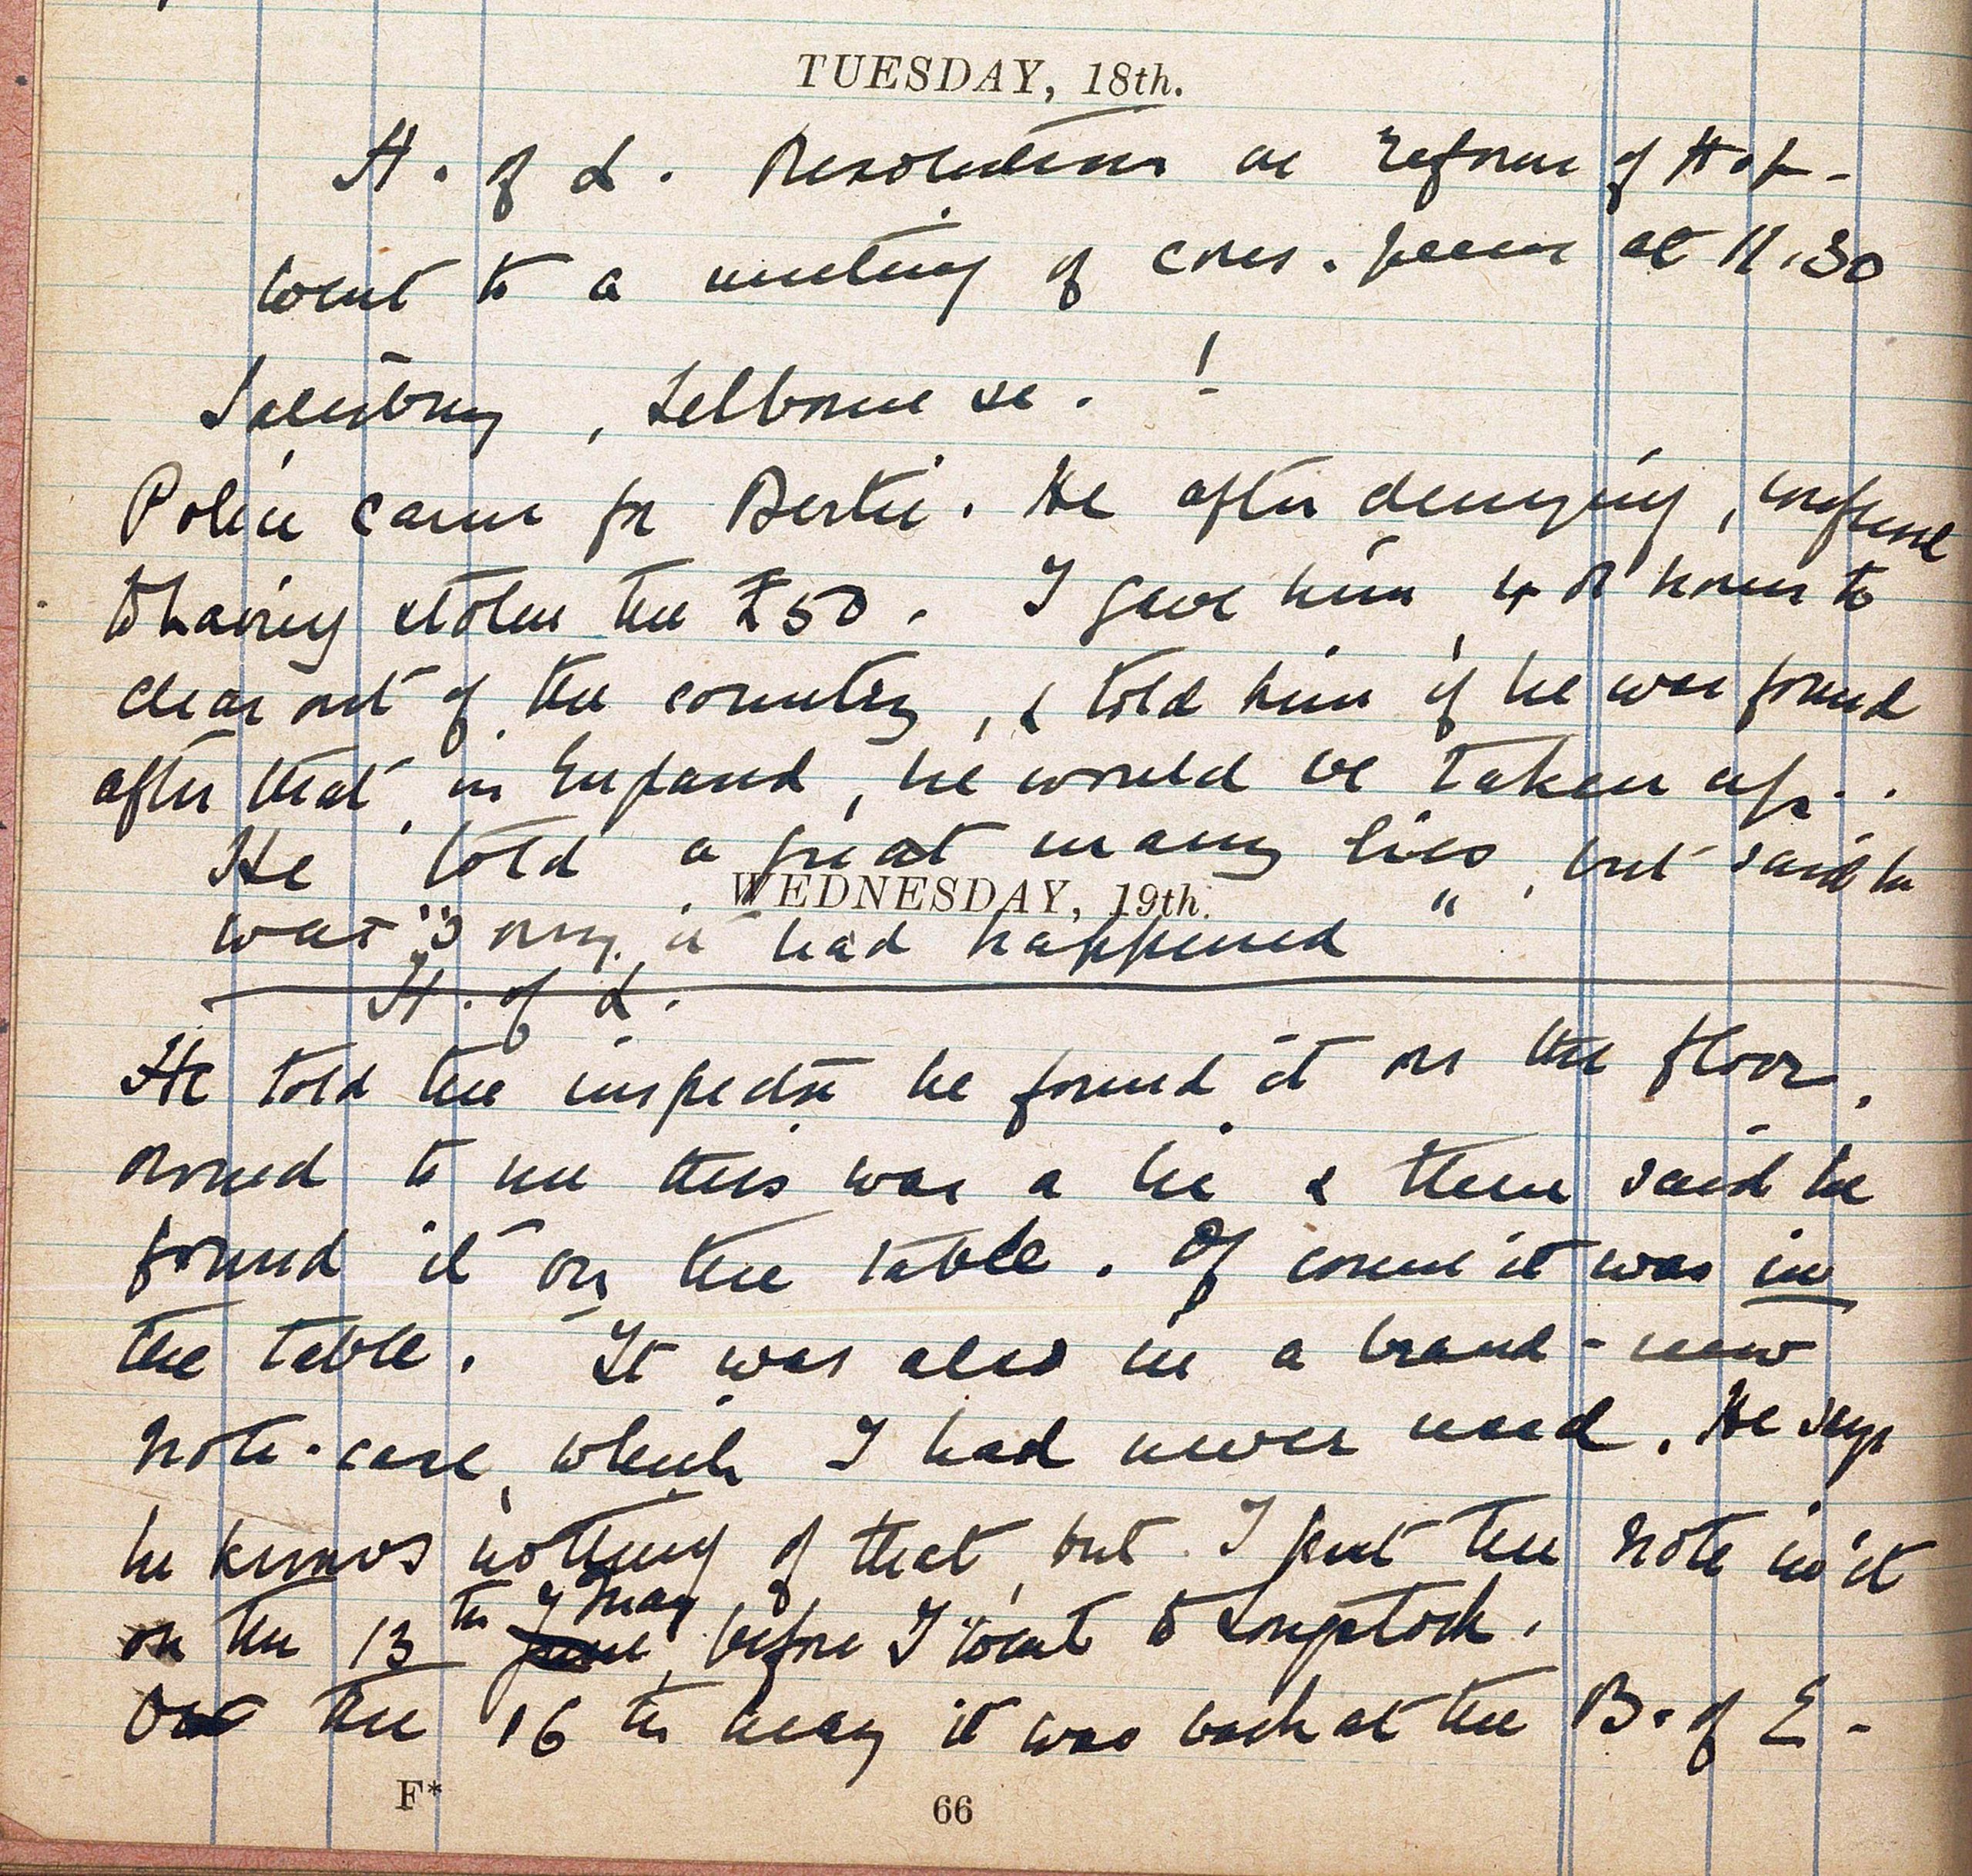 TUESDAY, 18th.
H. of L. Resolutions on reform of H of L
went to a meeting of cons. peers at 11.30
Salisbury, Selborne &c. !
Police came for Bertie. He after denying, confessed
to having stolen the £50. I gave him 48 hours to
clear out of the country, & told him if he was found
after that, in England, he would be taken up..
He told a great many lies, but said he
WEDNESDAY, 19th.
was "sorry it had happened"
H. of L.
He told the inspector he found it on the floor,
owned to me this was a lie & then said he
found it on the table. Of course it was in
the table. It was also in a brand-new
note-case which I had never used. He says
he knows nothing of that, but I put the note in it
on the 13th of May before I went to Longstock.
the 16th May it was back at the B. of E -
F* 66